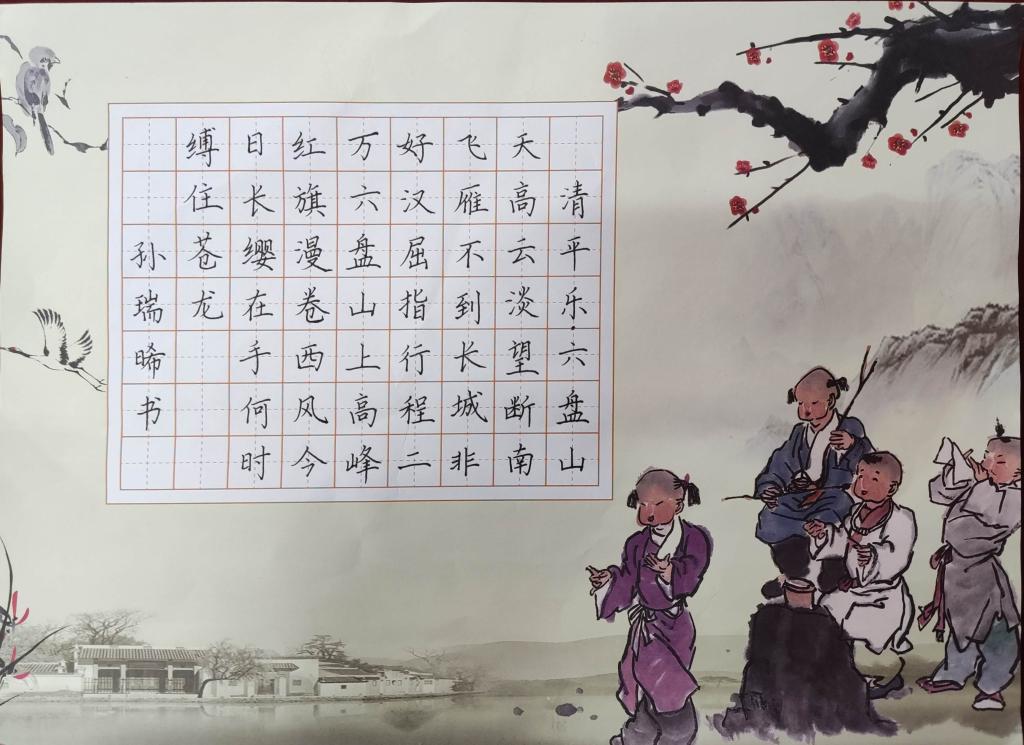 清平乐·六盘山
天高云淡望断南
飞雁不到长城非
好汉屈指行程二
万六盘山上高峰
红旗漫卷西风今
日长缨在手何时
缚住苍龙
孙瑞晞书